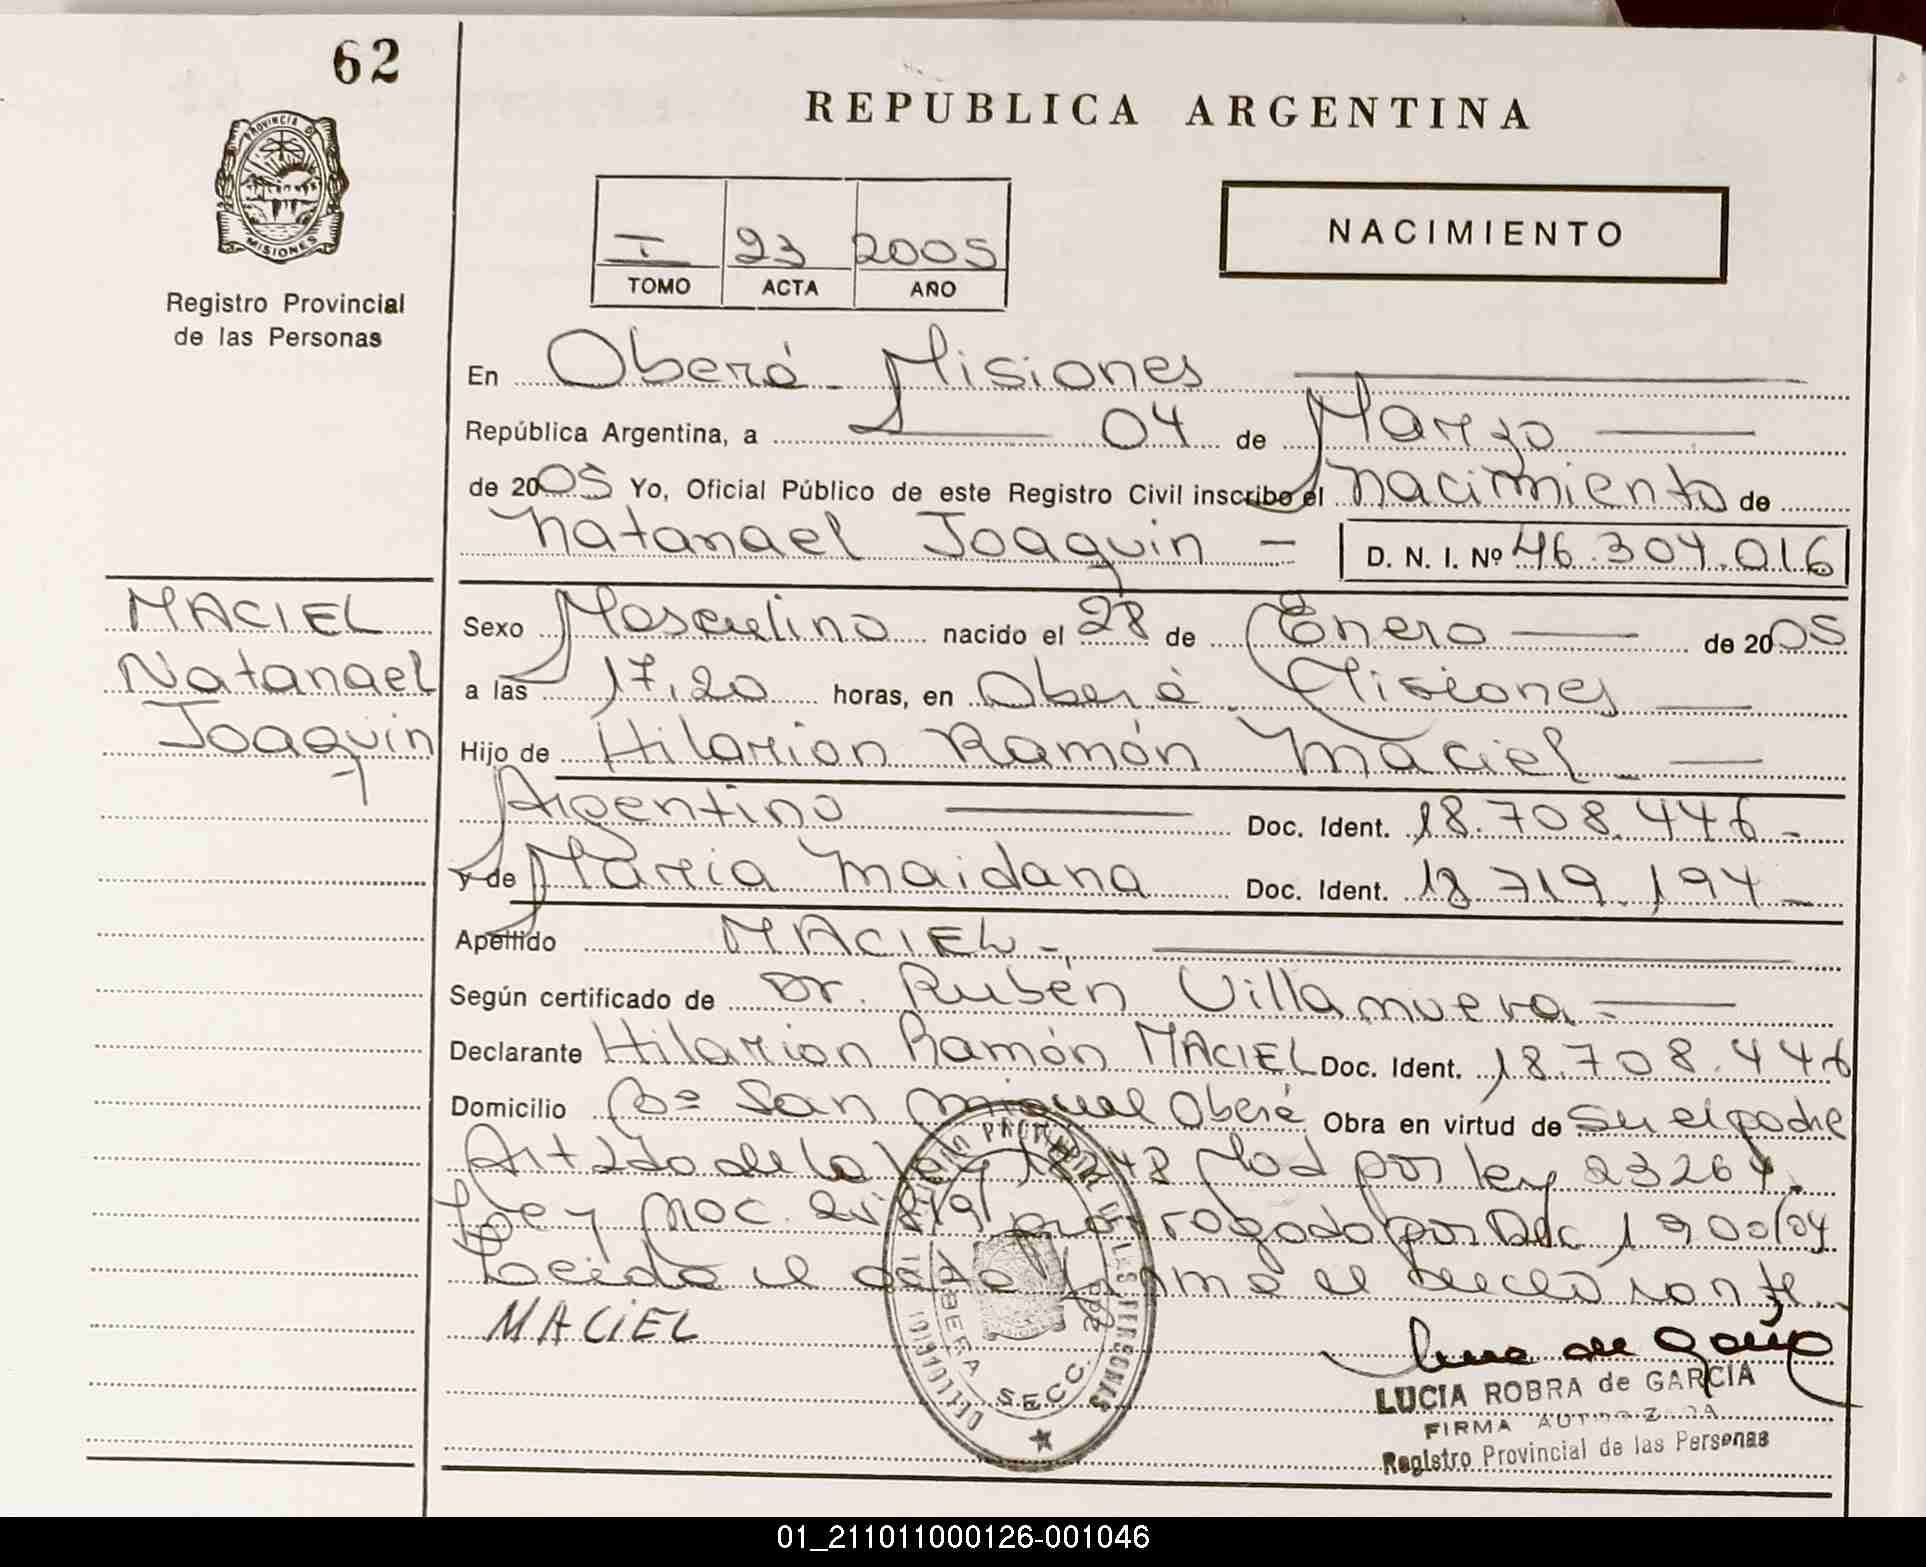 62
REPUBLICA ARGENTINA
PROVINCIA DE
MISIONES
Registro Provincial
de las Personas
I 23 2005
TOMO ACTA AÑO
NACIMIENTO
En Oberá - Misiones
República Argentina, a 04 de Marzo
de 2005 Yo, Oficial Público de este Registro Civil inscribo el nacimiento de
Natanael Joaquin - D. N. I. Nº 46.304.016
MACIEL
Natanael
Joaquin
Sexo Masculino nacido el 28 de Enero de 2005
a las 17,20 horas, en Oberá - Misiones
Hijo de Hilarion Ramón Maciel -
Argentino Doc. Ident. 18.708.446 -
y de Maria Maidana Doc. Ident. 18.719.194 -
Apellido MACIEL -
Según certificado de Dr. Rubén Villanueva -
Declarante Hilarion Ramón MACIEL Doc. Ident. 18.708.446
Domicilio Bº San Miguel Oberá Obra en virtud de Su el padre
Art de la ley 18248 Mod por ley 23264.
Ley Nac. prorrogado por Dec 1900/04
Leida el acta firma el declarante.
MACIEL
LAS PERSONAS
OBERA SECC.
LUCIA ROBRA de GARCIA
FIRMA AUTORIZADA
Registro Provincial de las Personas
01_211011000126-001046